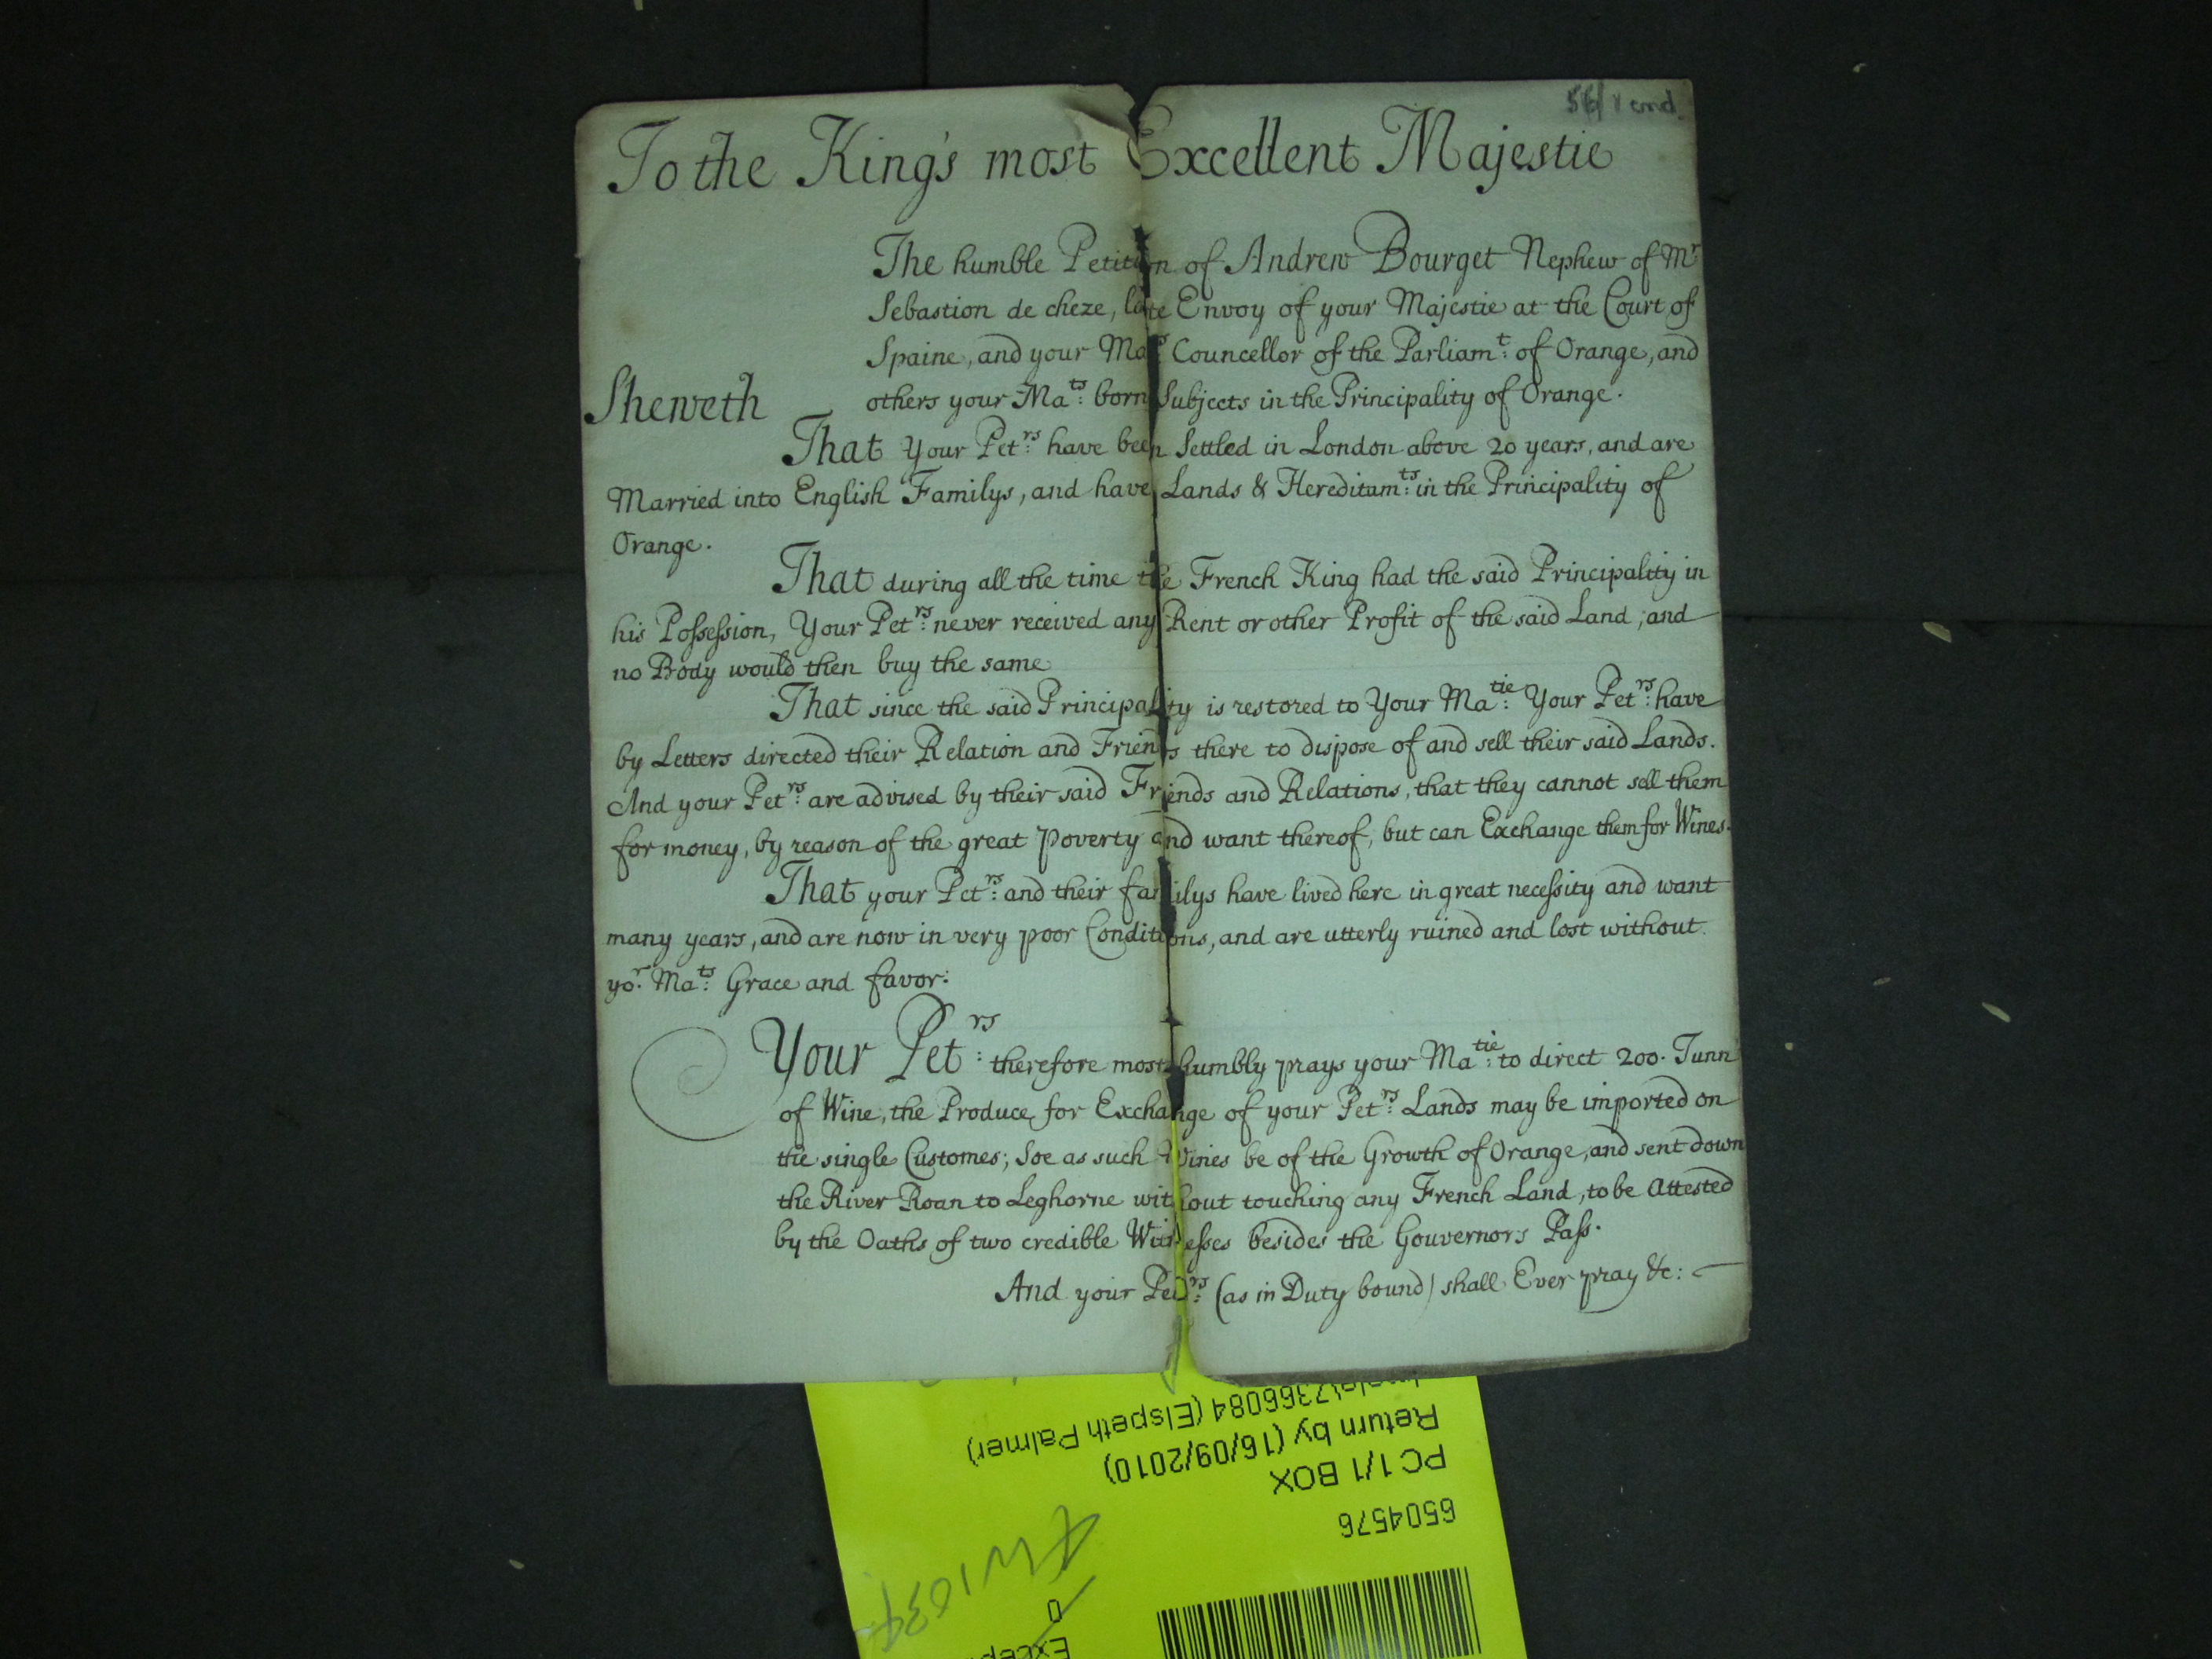 To the King's most Excellent Majestie
The humble Petition of Andrew Bourget Nephew of Mr
Sebastion de cheze, late Envoy of your Majestie at the Court of
Spaine, and your Mats Councellor of the Parliamt: of Orange, and
Sheweth others your Mats: born Subjects in the Principality of Orange.
That Your Petrs: have been Settled in London above 20 years, and are
Married into English Familys, and have Lands & Hereditamts: in the Principality of
Orange.
That during all the time the French King had the said Principality in
his Possession, Your Petrs: never received any Rent or other Profit of the said Land, and
no Body would then buy the same
That since the said Principality is restored to Your Matie: Your Petrs: have
by Letters directed their Relation and Friends there to dispose of and sell their said Lands.
And your Petrs: are advised by their said Friends and Relations, that they cannot sell them
for money, by reason of the great Poverty and want thereof, but can Exchange them for Wines.
That your Petrs: and their familys have lived here in great necessity and want
many years, and are now in very poor Conditions, and are utterly ruined and lost without
yor. Mats: Grace and favor:
Your Petrs: therefore most humbly prays your Matie: to direct 200. Tunn
of Wine, the Produce for Exchange of your Petrs: Lands may be imported on
the single Customes; Soe as such Wines be of the Growth of Orange, and sent down
the River Roan to Leghorne without touching any French Land, to be Attested
by the Oaths of two credible Witnesses besides the Gouvernors Pass.
And your Petrs: (as in Duty bound) shall Ever pray &c:
6504576
PC 1/1 BOX
Return by (16/09/2010)
7366084 (Elspeth Palmer)
0